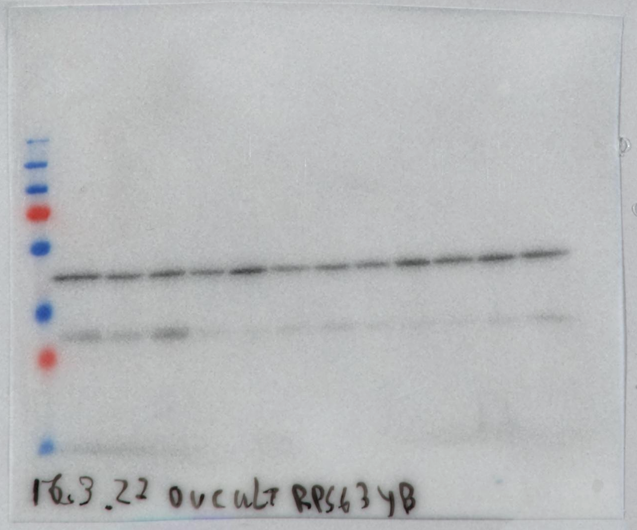 16.3.22 OVCULT RPS63YB